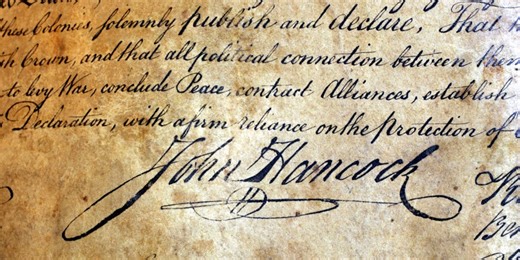 these Colonies, solemnly publish and declare, That
Crown, and that all political connection between them
to levy War, conclude Peace, contract Alliances, establish
Declaration, with a firm reliance on the protection of
John Hancock